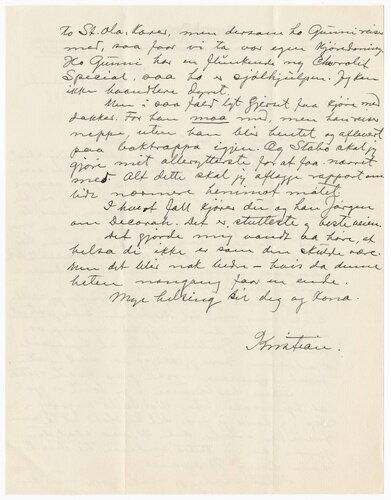 to St. Ola. Karer, men dersom ho Gunni reiser
med, saa faar vi ta vor egen kjøredoning.
Ho Gunni har en flunkende ny Chevrolet
Special, saa ho er sjølhjulpen. Jeg kan
ikke haandlere Dyret.
Men i saa fald lyt Gjerut faa kjøre med
Bakker. For han maa med, men han reiser
neppe, uten han blir hentet og aflevert
paa baktrappa igjen. Og Stabo skal jeg
gjøre mit allerytterste for at faa narret
med. Alt dette skal jeg aflegge rapport om
litt nærmere henimot møtet.
I hvert fall kjører du og han Jørgen
om Decorah. Det er stutteste og beste veien.
Det gjorde mig vondt aa høre, at
helsa di ikke er som den skulde være.
Men det blir nok bedre – hvis da denne
heten nongang faar en ende.
Mye helsing til deg og Kona.
Kristian.